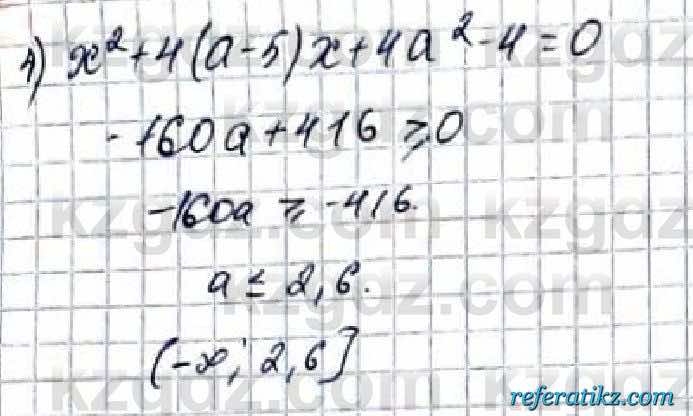 4) x²+4(a-5)x+4a²-4=0
-160a+416⩾0
-160a ⩾ -416.
a ≤ 2,6.
(-∞; 2,6]
referatikz.com